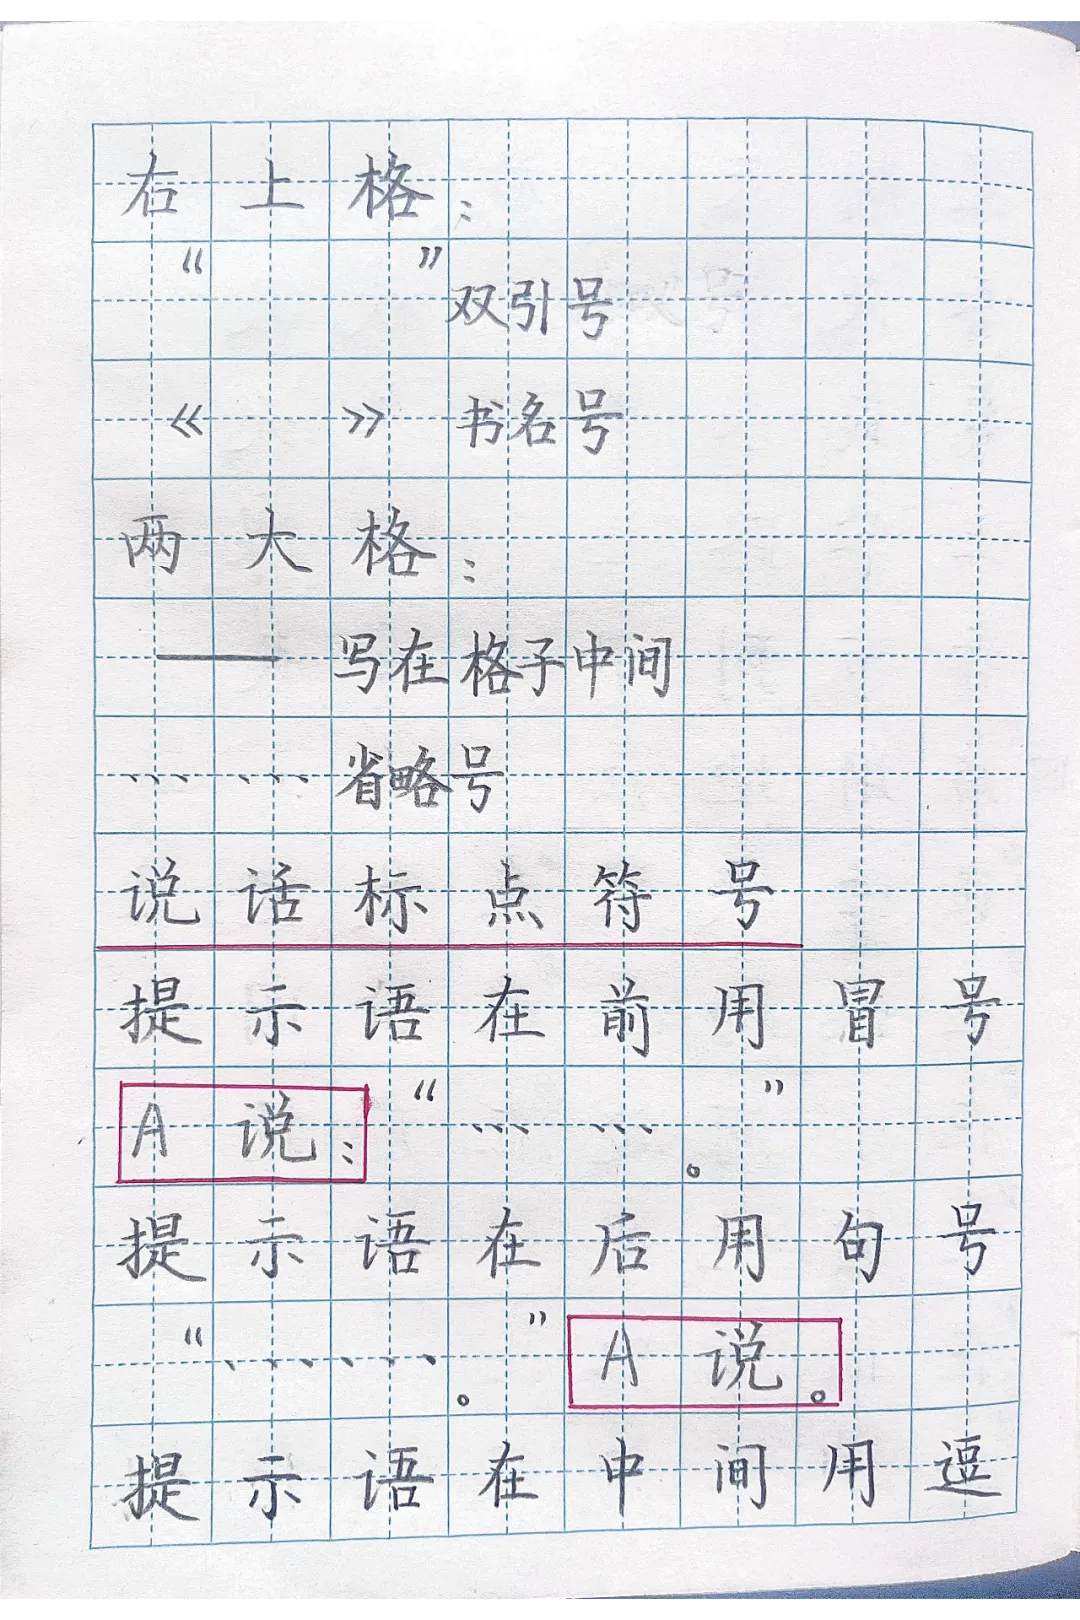 右上格：
“ ” 双引号
《 》 书名号
两大格：
—— 写在格子中间
…… 省略号
说话标点符号
提示语在前用冒号
A说：“……。”
提示语在后用句号
“……。”A说。
提示语在中间用逗